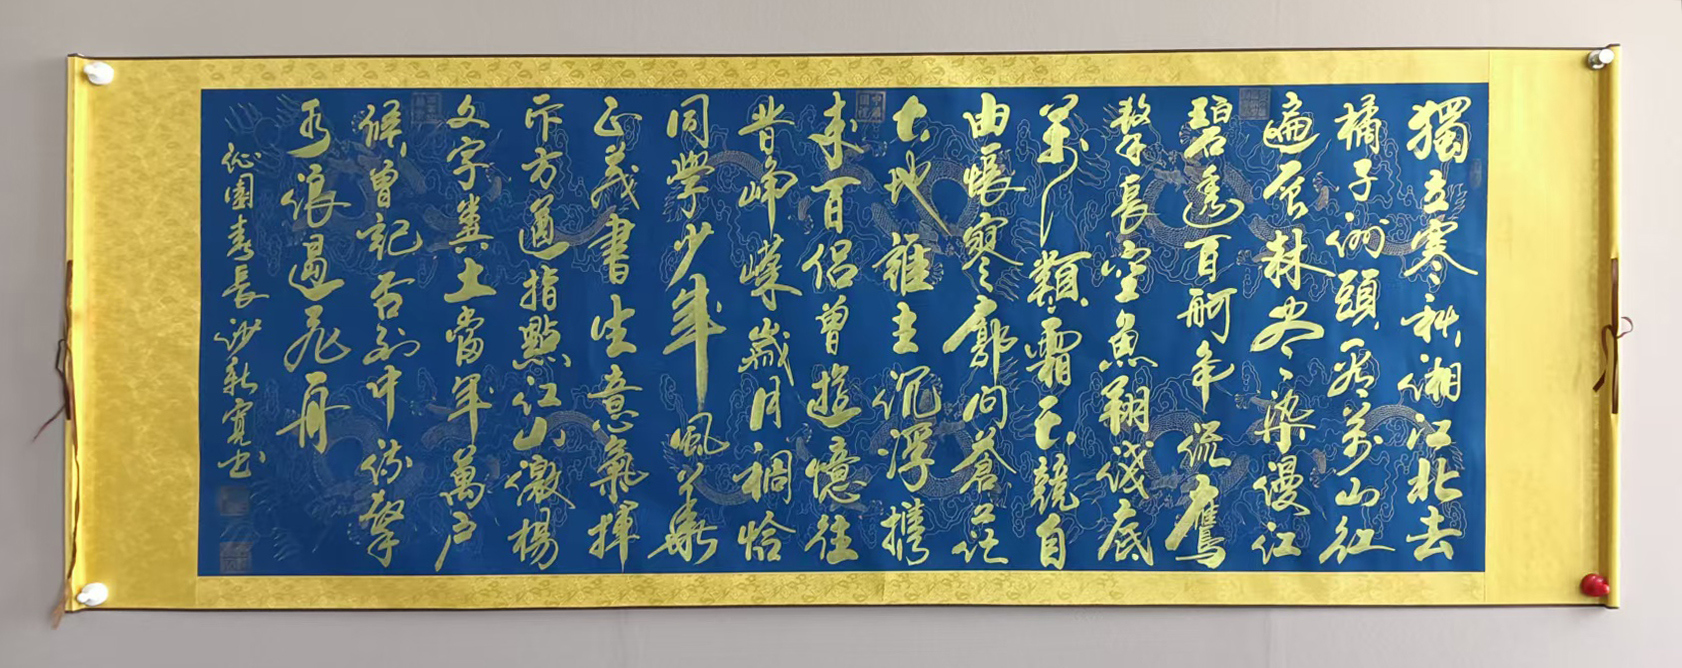 獨立寒秋湘江北去
橘子洲頭看萬山红
遍层林尽染漫江
碧透百舸争流鷹
擊長空魚翔浅底
萬類霜天競自
由悵寥廓问蒼茫
大地誰主沉浮携
来百侣曾遊憶往
昔峥嶸歲月稠恰
同學少年風華
正茂書生意氣揮
斥方遒指點江山激揚
文字糞土當年萬户
候曾記否到中流擊
水浪遏飛舟
沁園春長沙寬书